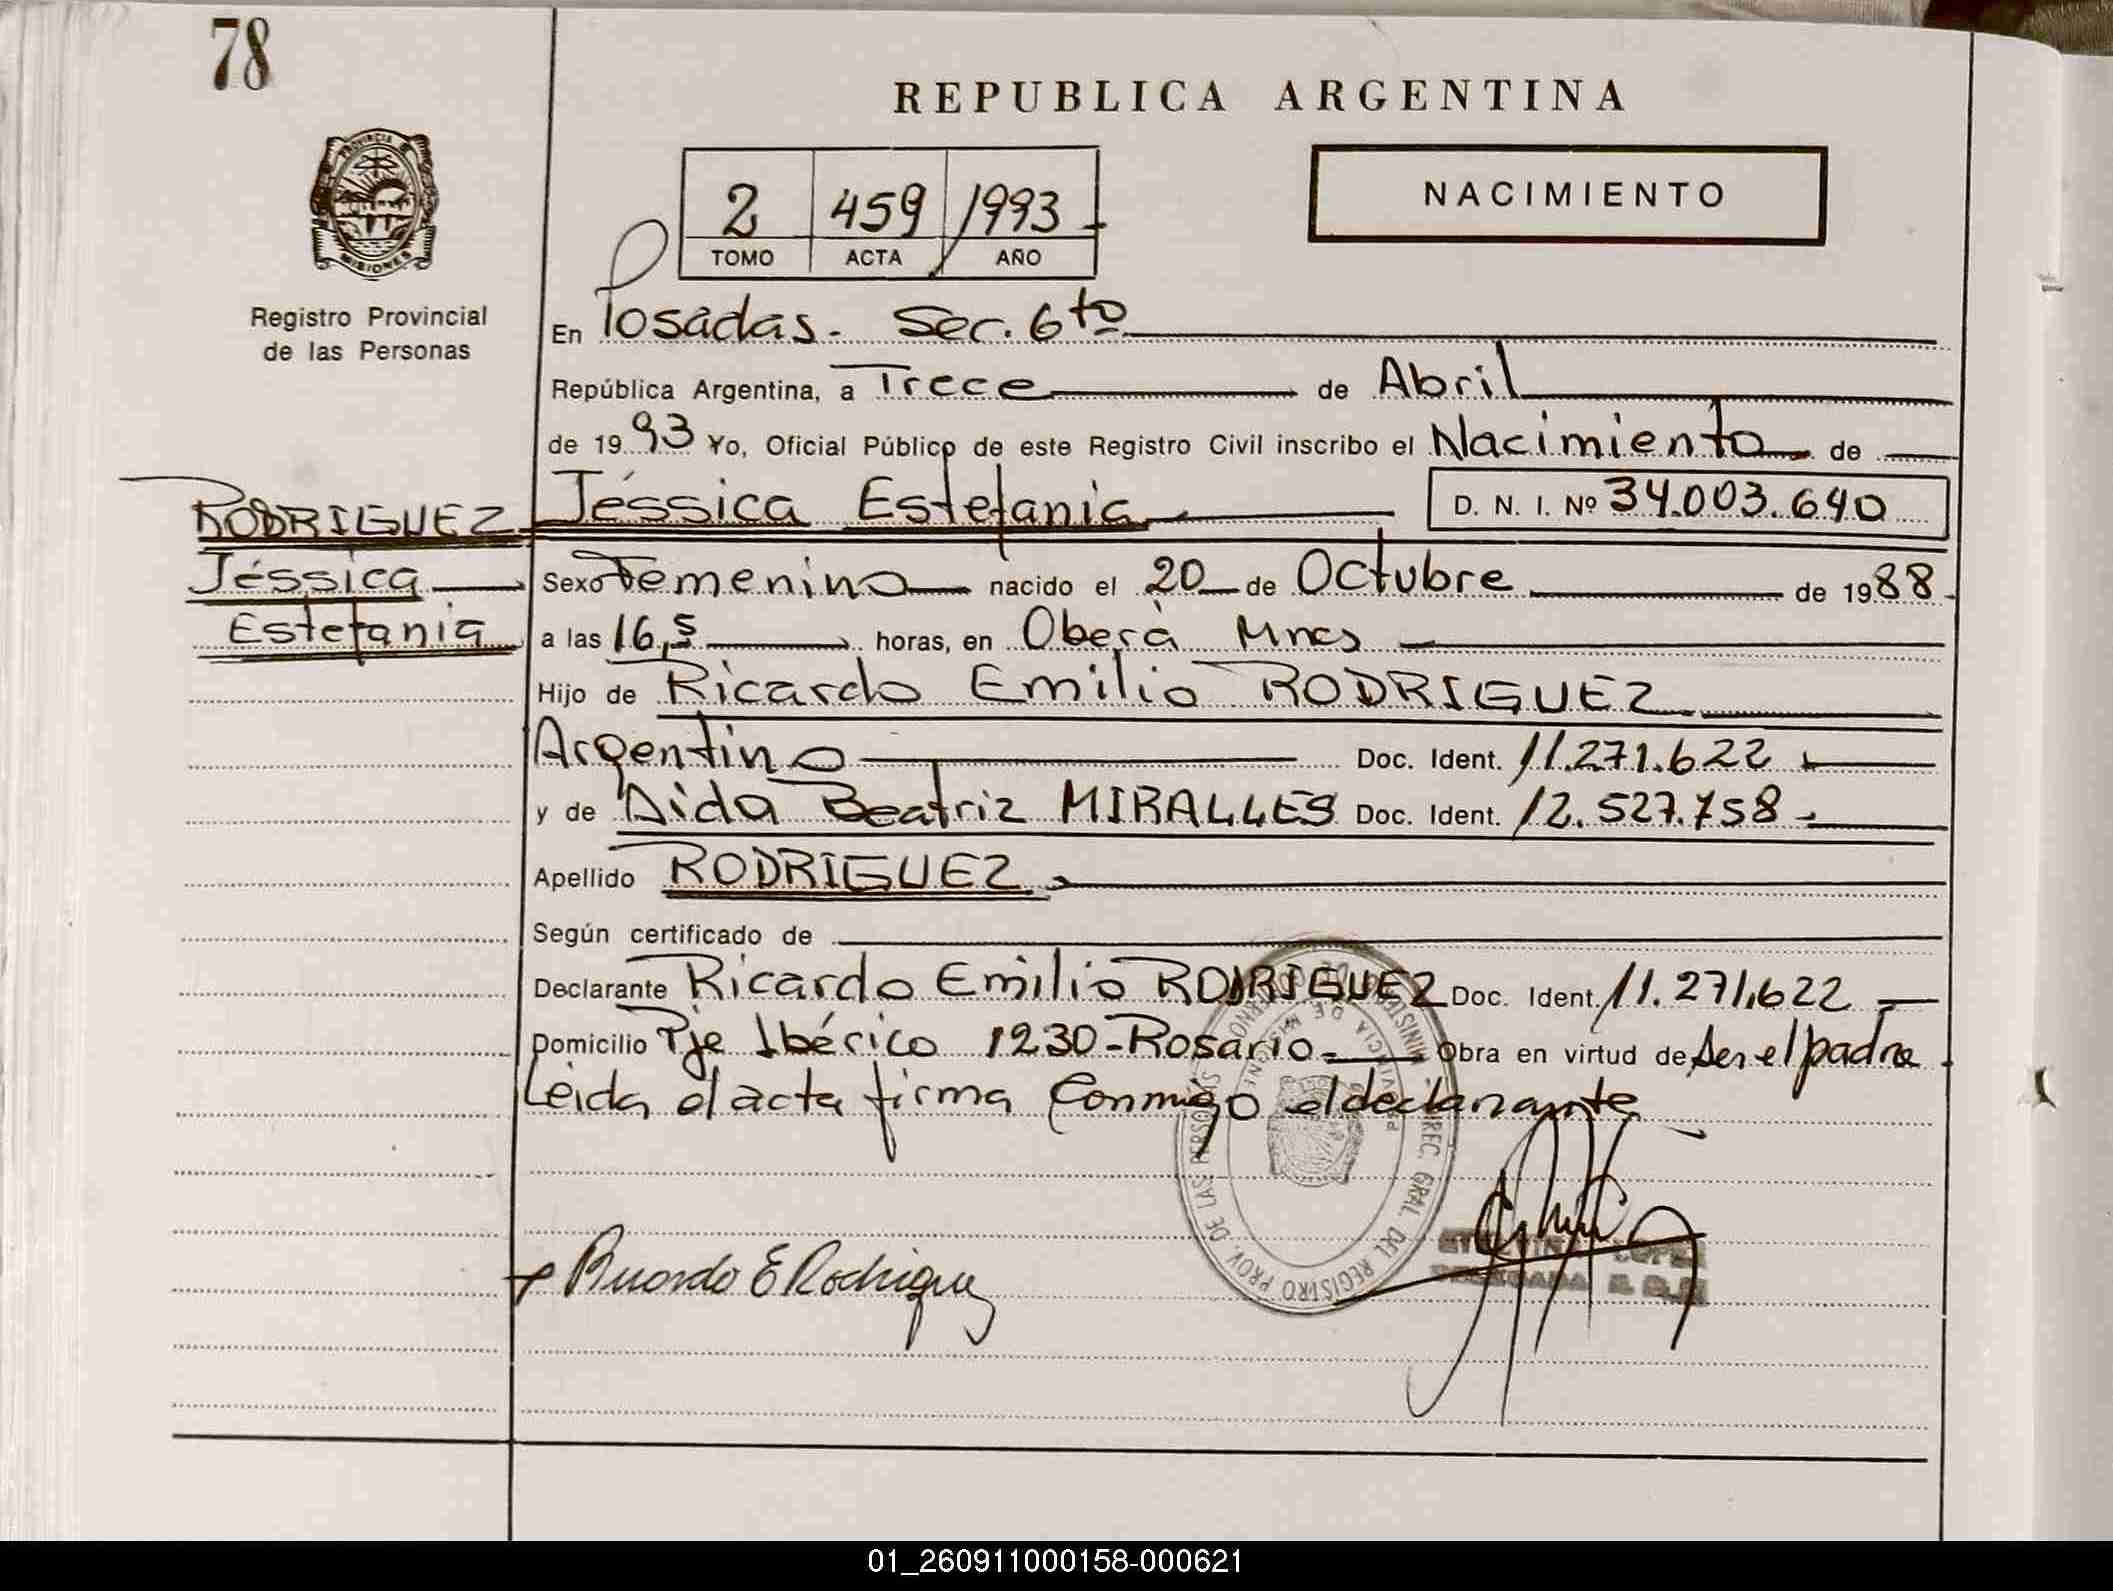 78
REPUBLICA ARGENTINA
NACIMIENTO
2 459 1993
TOMO ACTA AÑO
PROVINCIA DE
MISIONES
Registro Provincial
de las Personas
En Posadas - Sec. 6to
República Argentina, a Trece de Abril
de 1993 Yo, Oficial Público de este Registro Civil inscribo el Nacimiento de
RODRIGUEZ Jéssica Estefania D. N. I. Nº 34.003.640
Jéssica
Estefania
Sexo Femenino nacido el 20 de Octubre de 1988
a las 16,5 horas, en Oberà Mnes
Hijo de Ricardo Emilio RODRIGUEZ
Argentino Doc. Ident. 11.271.622
y de Aida Beatriz MIRALLES Doc. Ident. 12.527.758
Apellido RODRIGUEZ
Según certificado de
Declarante Ricardo Emilio RODRIGUEZ Doc. Ident. 11.271.622
Domicilio Pje Ibérico 1230 - Rosario - Obra en virtud de ser el padre
Leida el acta firma conmigo el declarante
DIREC. GRAL. DEL REGISTRO PROV. DE LAS PERSONAS
PROVINCIA DE MISIONES
Ricardo E Rodriguez
LOPEZ
01_260911000158-000621